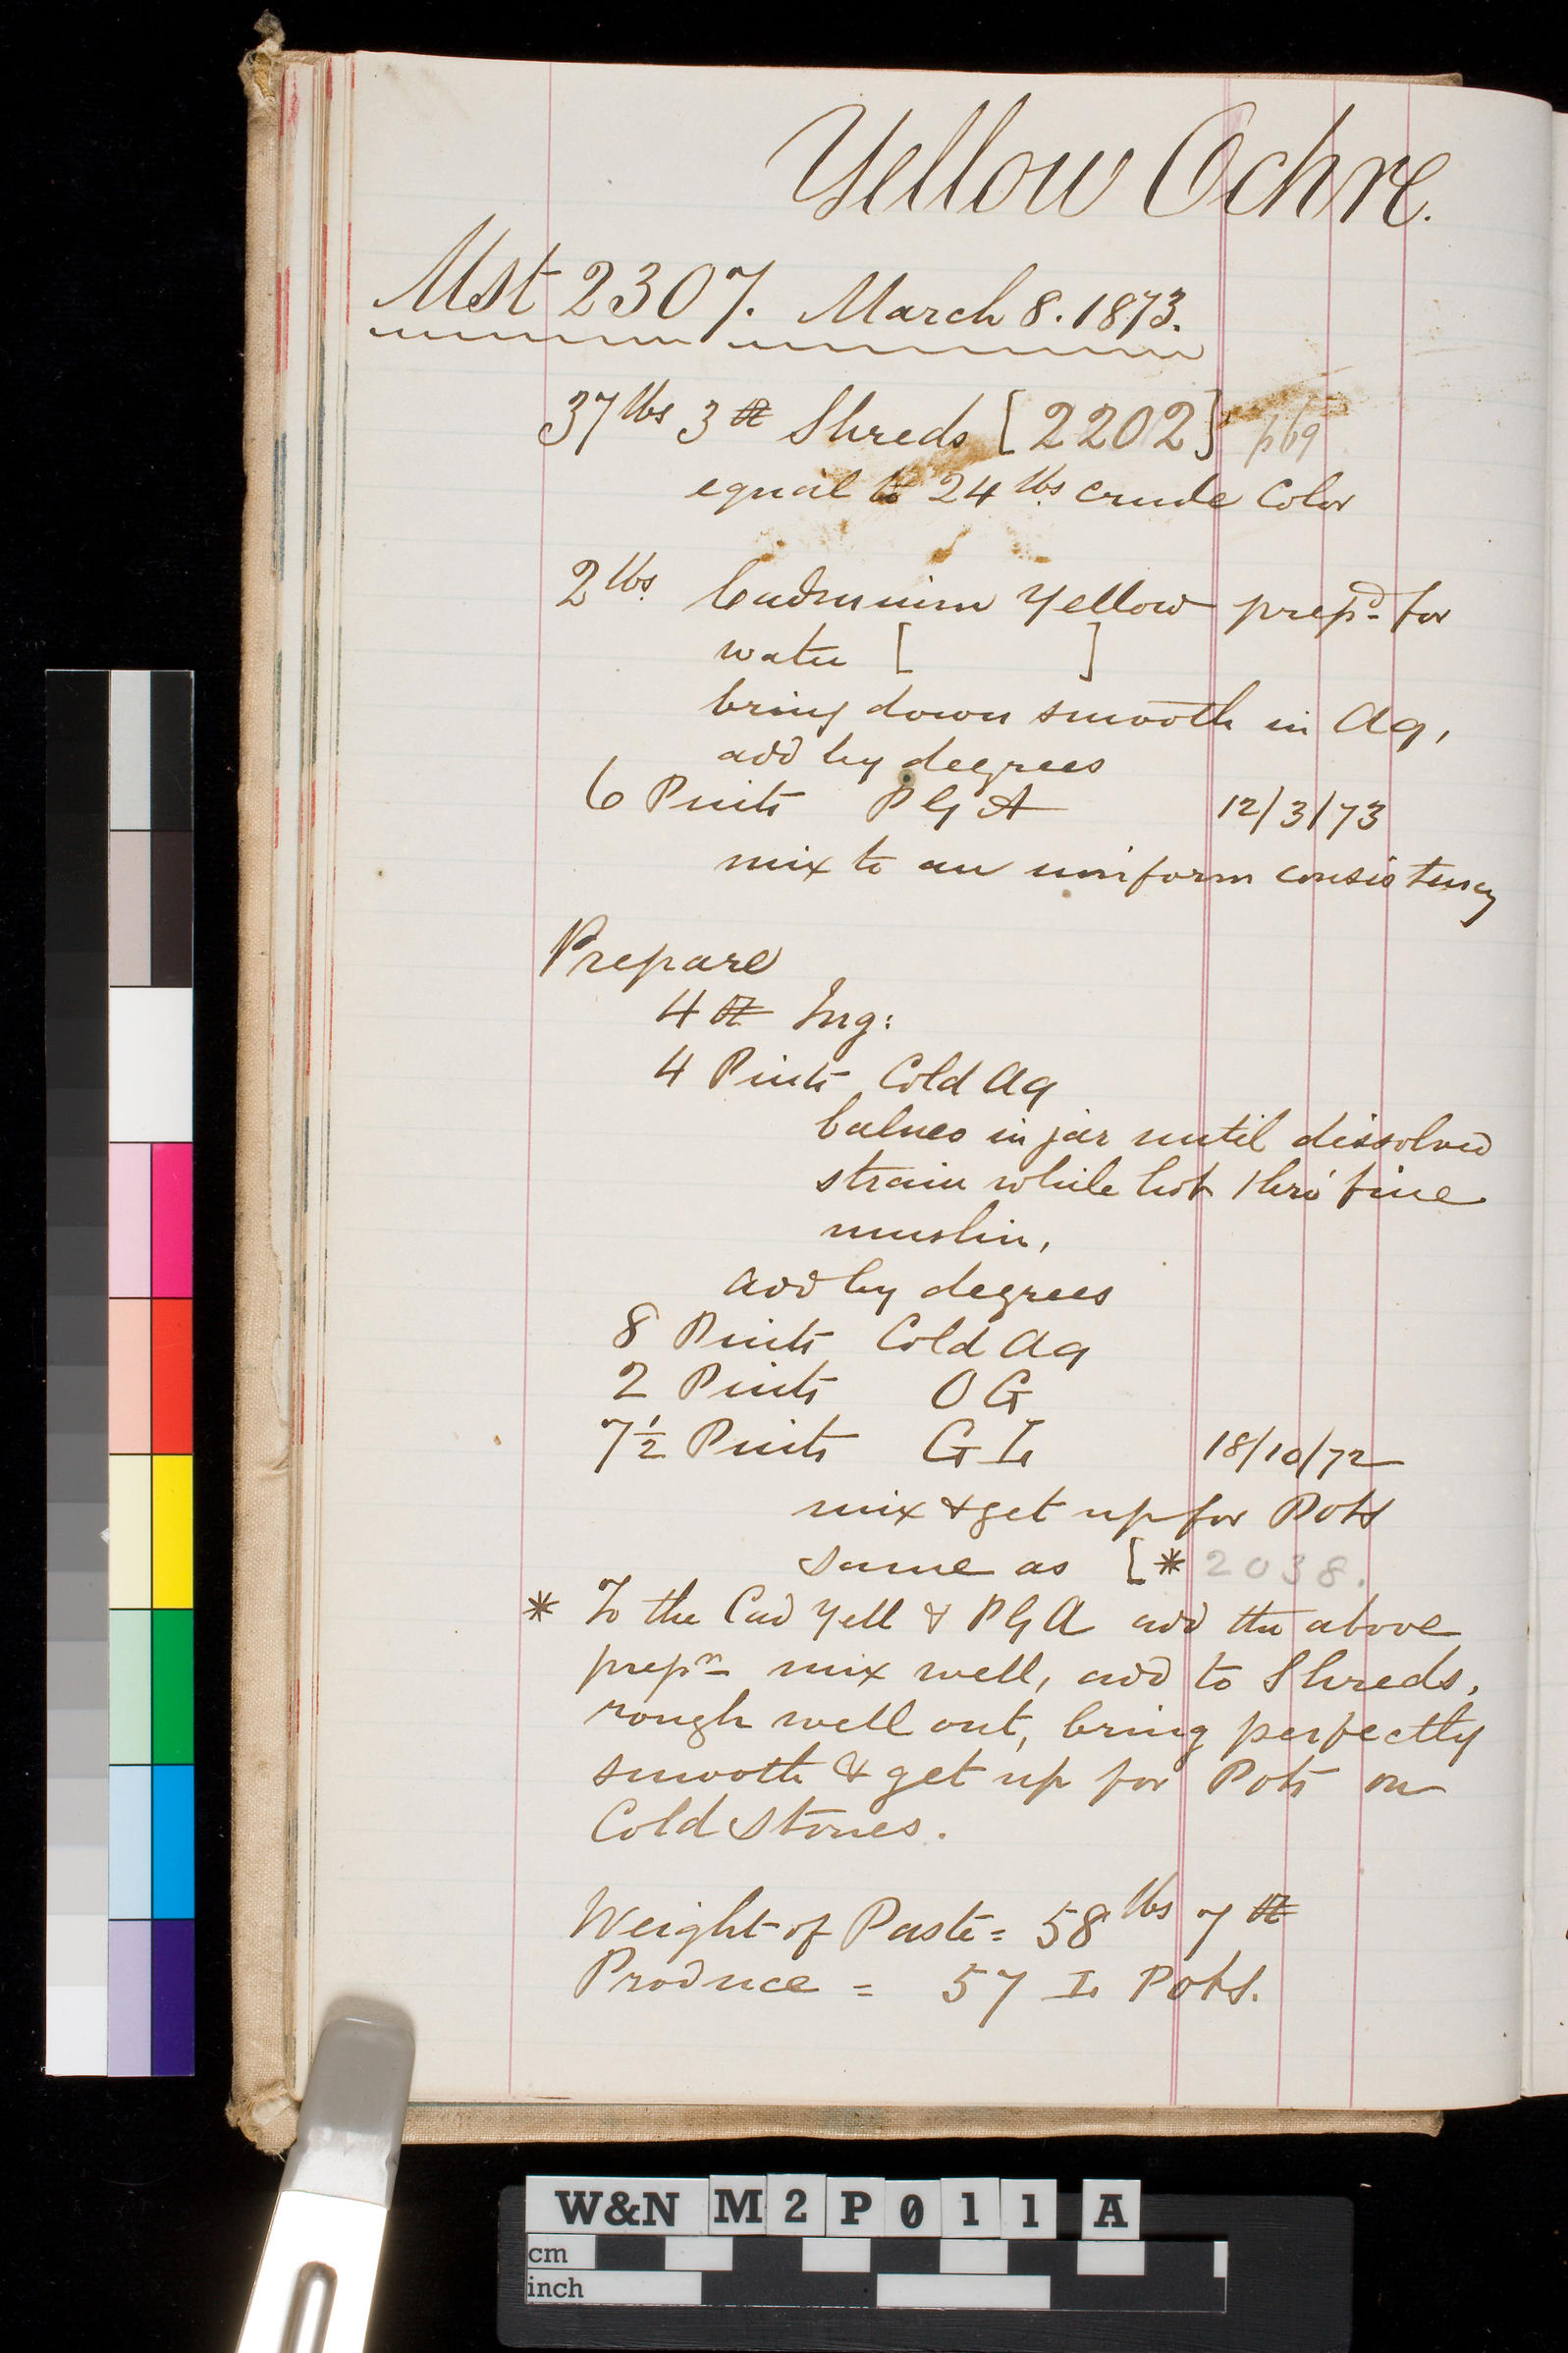 Yellow Ochre.
Mst 2307. March 8. 1873.
37 lbs 3 Shreds [2202] p69
equal to 24 lbs. crude Color
2 lbs. Cadmium Yellow prepd. for
water [ ]
bring down smooth in Aq,
add by degrees
6 Pints P G A 12/3/73
mix to an uniform consistency
Prepare
4
4 Pints Cold Aq
balneo in jar until dissolved
strain while hot thro' fine
muslin,
add by degrees
8 Pints Cold Aq
2 Pints O G
7½ Pints G L 18/10/72
mix & get up for Pots
same as [* 2038.
* To the Cad Yell & P G A add the above
prepn mix well, add to Shreds,
rough well out, bring perfectly
smooth & get up for Pots on
Cold Stones.
Weight of Paste = 58 lbs 7
Produce = 57 L Pots.
W&N M2P011 A
cm
inch